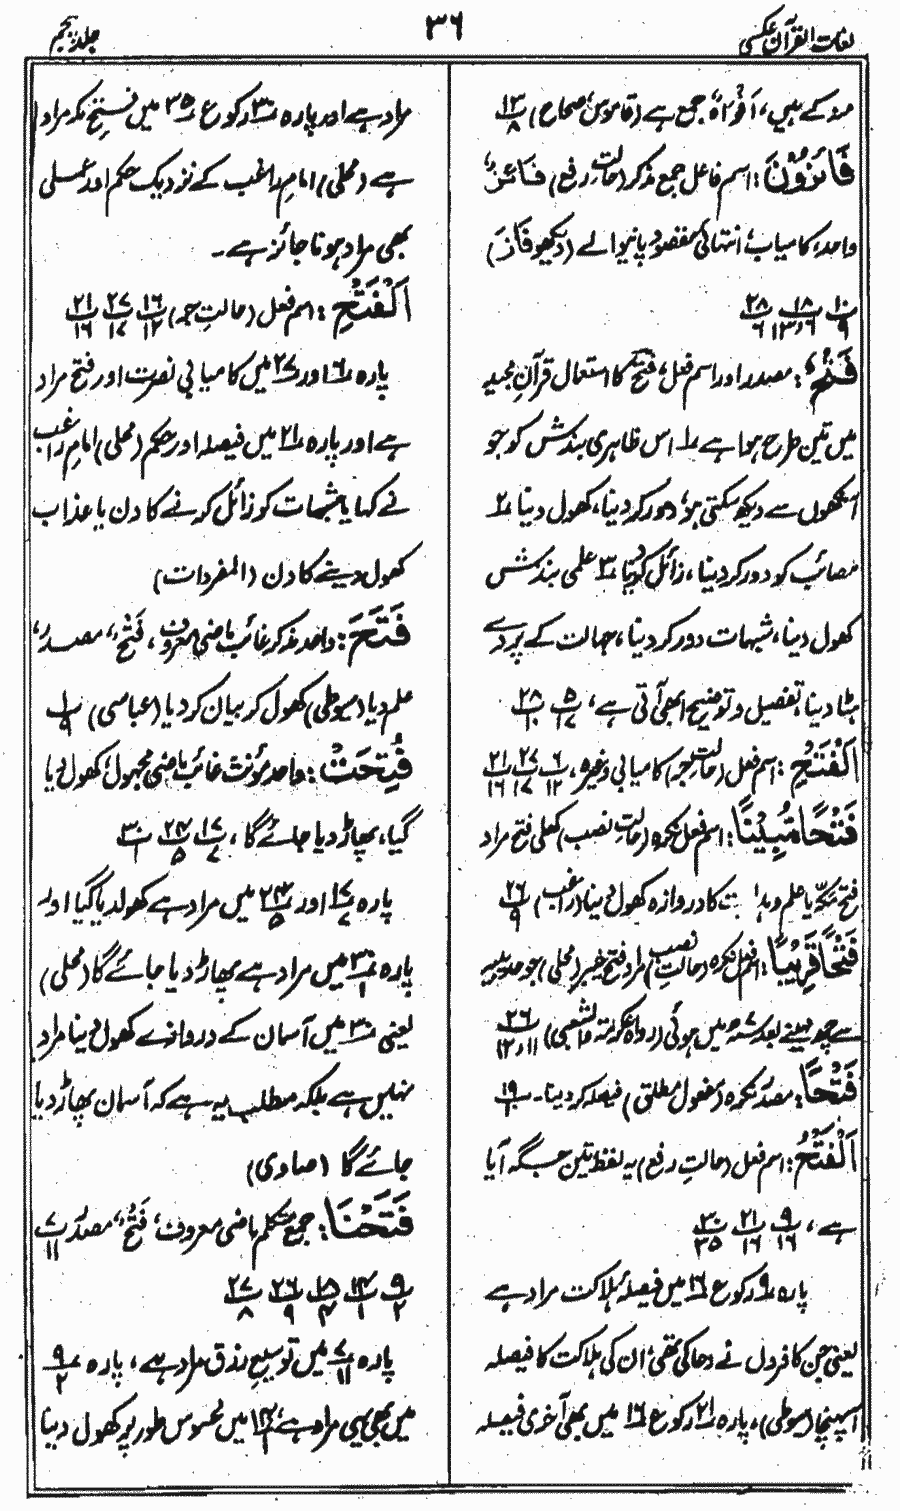 لغات القرآن عکسی
۳۶
جلد پنجم
منہ کے ہیں، اَفْوَاہٌ جمع ہے (قاموس، صحاح) ۱۳/۸
فَائِزُوْنَ: اسم فاعل جمع مذکر (حالت رفع) فَائِزٌ
واحد، کامیاب، انتہائی مقصود پانیوالے (دیکھو فَازَ)
۱۰/۹ ۱۸/۱۳،۶ ۲۸/۶
فَتْحٌ: مصدر اور اسم فعل، فتح کا استعمال قرآنِ مجید
میں تین طرح ہوا ہے ۱ اس ظاہری بندش کو جو
آنکھوں سے دیکھ سکتی ہو، دور کر دینا، کھول دینا ۲
مصائب کو دور کر دینا، زائل کر دینا ۳ علمی بندش
کھول دینا، شبہات دور کر دینا، جہالت کے پردے
ہٹا دینا، تفصیل و توضیح بھی آتی ہے، ۵/۱۲ ۲۸/۱۰
اَلْفَتْحِ: اسم فعل (حالت جر) کامیابی وغیرہ، ۶/۱۲ ۲۷/۱۷ ۲۱/۱۶
فَتْحًا مُّبِیْنًا: اسم فعل نکرہ (حالت نصب) کھلی فتح مراد
فتح مکہ یا علم و ہدایت کا دروازہ کھول دینا (راغب) ۲۶/۹
فَتْحًا قَرِیْبًا: اسم فعل نکرہ (حالتِ نصب) مراد فتح خیبر (محلی) جو حدیبیہ
سے چھ مہینے بعد ۷ھ میں ہوئی (رواہ عکرمۃ والشعبی) ۲۶/۱۱،۱۲
فَتْحًا: مصدر نکرہ (مفعول مطلق) فیصلہ کر دینا۔ ۱۹/۱۰
اَلْفَتْحُ: اسم فعل (حالتِ رفع) یہ لفظ تین جگہ آیا
ہے، ۹/۱۶ ۲۱/۱۶ ۳۰/۳۵
پارہ ۹ رکوع ۱۶ میں فیصلۂ ہلاکت مراد ہے
یعنی جن کافروں نے دعا کی تھی، ان کی ہلاکت کا فیصلہ
آپہنچا (سیوطی)، پارہ ۲۱ رکوع ۱۶ میں بھی آخری فیصلہ
مراد ہے اور پارہ ۳۰ رکوع ۳۵ میں فتح مکہ مراد
ہے (محلی) امامِ راغب کے نزدیک حکم اور عملی
بھی مراد ہونا جائز ہے۔
اَلْفَتْحِ: اسم فعل (حالتِ جر) ۱۶/۱۲ ۲۷/۱۷ ۲۱/۱۶
پارہ ۶ اور ۲۷ میں کامیابی نصرت اور فتح مراد
ہے اور پارہ ۲۱ میں فیصلہ اور حکم (محلی) امامِ راغب
نے کہا یا شبہات کو زائل کرنے کا دن یا عذاب
کھول دینے کا دن (المفردات)
فَتَحَ: واحد مذکر غائب ماضی معروف، فَتْحٌ، مصدر،
علم دیا (سیوطی) کھول کر بیان کر دیا (عباسی) ۱/۹
فُتِحَتْ: واحد مؤنث غائب ماضی مجہول، کھول دیا
گیا، پھاڑ دیا جائے گا، ۱۷/۷ ۲۴/۵ ۳۰/۱
پارہ ۱۷/۷ اور ۲۴/۵ میں مراد ہے کھولدیا گیا اور
پارہ ۳۰/۱ میں مراد ہے پھاڑ دیا جائے گا (محلی)
یعنی ۳۰ میں آسمان کے دروازے کھول دینا مراد
نہیں ہے بلکہ مطلب یہ ہے کہ آسمان پھاڑ دیا
جائے گا (صاوی)
فَتَحْنَا: جمع متکلم ماضی معروف، فَتْحٌ، مصدر ۷/۱۱
۹/۲ ۱۴/۱ ۱۵/۴ ۲۶/۹ ۲۷/۸
پارہ ۷/۱۱ میں توسیعِ رزق مراد ہے، پارہ ۹/۲
میں بھی یہی مراد ہے، ۱۴/۱ میں محسوس طور پر کھول دینا